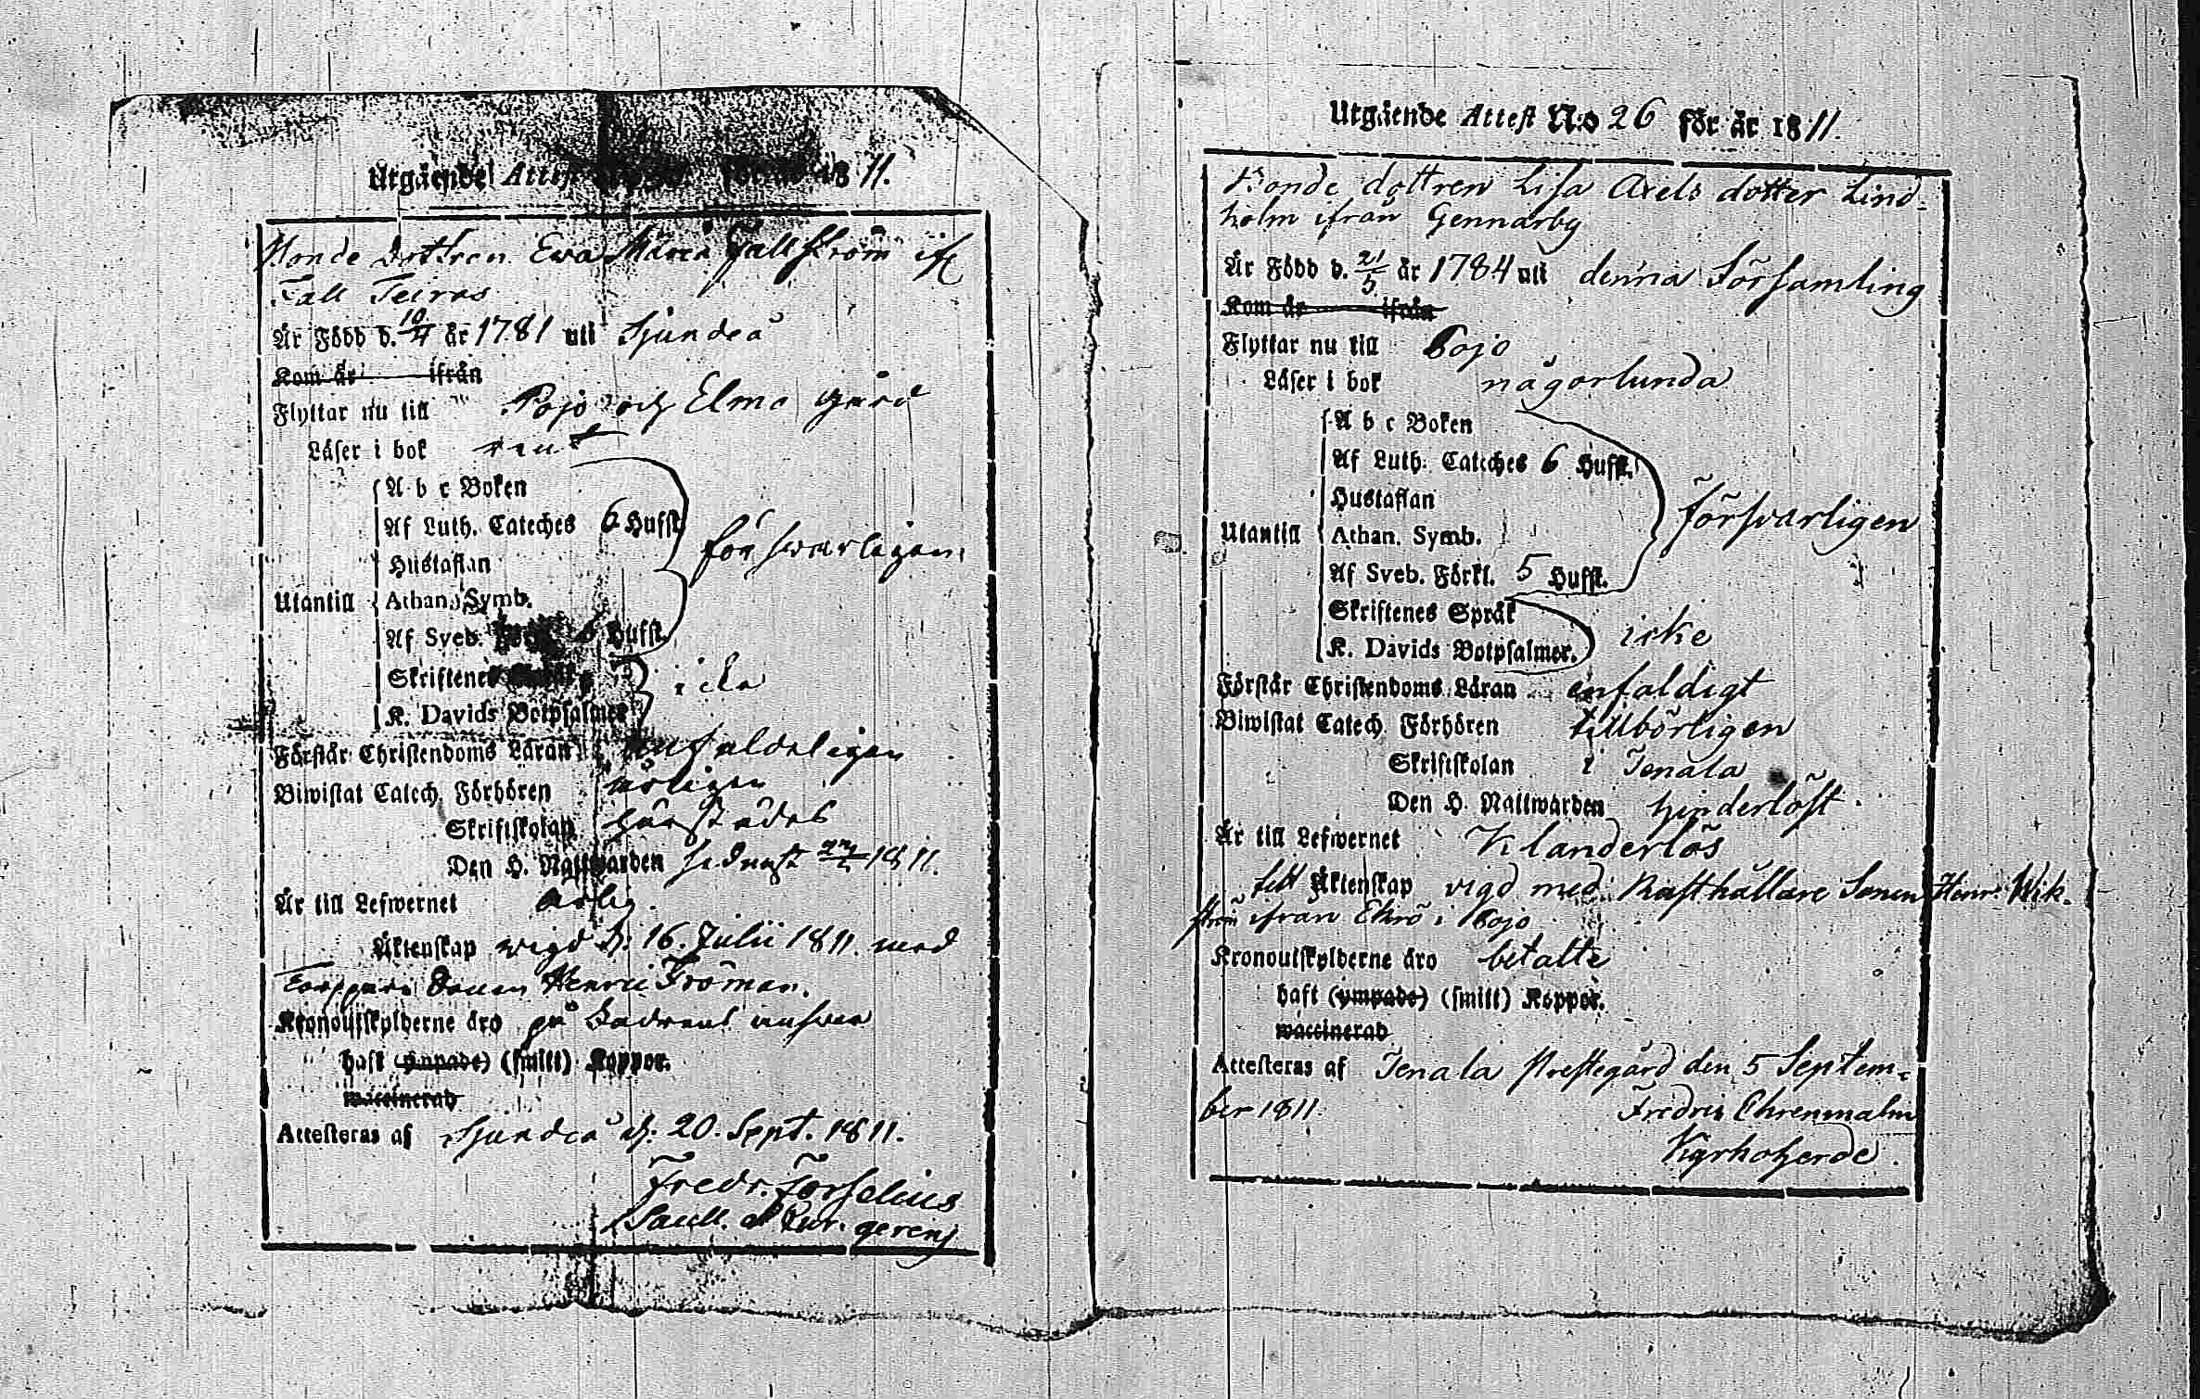 Utgående Attest för år 1811.
Bonde Dottren Ewa Maria Fallström if
Fall Teiras
Är Född d. 10/4 år 1781 uti Sjundeå
Kom år ifrån
Flyttar nu till Pojo och Elmo gård
Läser i bok rent
A b c Boken
Af Luth. Cateches 6 Hufst.
Hustaflan
försvarligen
Utantill Athan. Symb.
Af Sveb. Hufst.
Skriftenes
icke
K. Davids Botpsalmer
Förstår Christendoms Läran enfaldeligen
Biwistat Catech. Förhören årligen
Skriftskolan härstädes
Den H. Nattwarden sednast 1811.
Är till Lefwernet ärlig.
Äktenskap wigd d. 16. Julii 1811. med
Torppare Sonen Henric Fröman.
Kronoutskylderne äro på Fadrens answar
haft (ympade) (smitt) Koppor.
waccinerad
Attesteras af Sjundeå d. 20. Sept. 1811.
Fredr. Forselius
Sacell. & Cur. gerens
Utgående Attest N:o 26 för år 1811.
Bonde dottren Lisa Axels dotter Lind-
holm ifrån Gennarby
Är Född d. 21/5 år 1784 uti denna Församling
Kom år ifrån
Flyttar nu till Pojo
Läser i bok någorlunda
A b c Boken
Af Luth. Cateches 6 Hufst.
Hustaflan
försvarligen
Utantill Athan. Symb.
Af Sveb. Förkl. 5 Hufst.
Skriftenes Språk
icke
K. Davids Botpsalmer.
Förstår Christendoms Läran enfaldigt
Biwistat Catech. Förhören tillbörligen
Skriftskolan i Tenala
Den H. Nattwarden hinderlöst.
Är till Lefwernet Klanderlös
till Äktenskap vigd med Rusthållare Sonen Henr. Wik-
ström ifrån Ekrö i Pojo
Kronoutskylderne äro betalte
haft (ympade) (smitt) Koppor.
waccinerad
Attesteras af Tenala Prestegård den 5 Septem-
ber 1811. Fredric Ehrenmalm
Kyrkoherde.